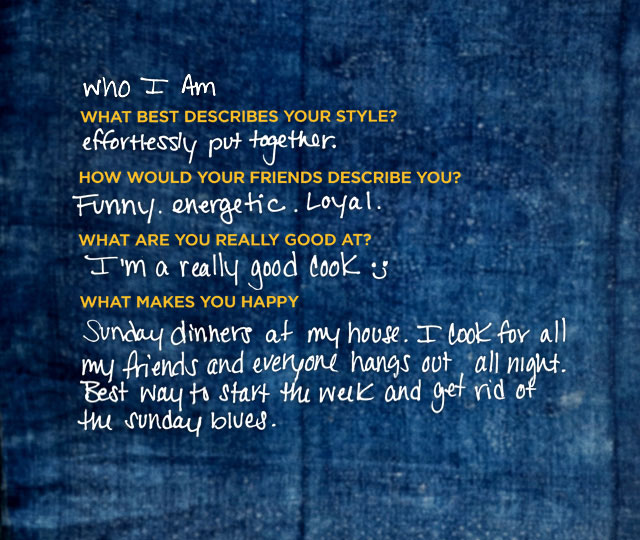 who I Am
WHAT BEST DESCRIBES YOUR STYLE?
effortlessly put together.
HOW WOULD YOUR FRIENDS DESCRIBE YOU?
Funny. energetic. Loyal.
WHAT ARE YOU REALLY GOOD AT?
I'm a really good cook :)
WHAT MAKES YOU HAPPY
Sunday dinners at my house. I cook for all
my friends and everyone hangs out, all night.
Best way to start the week and get rid of
the sunday blues.